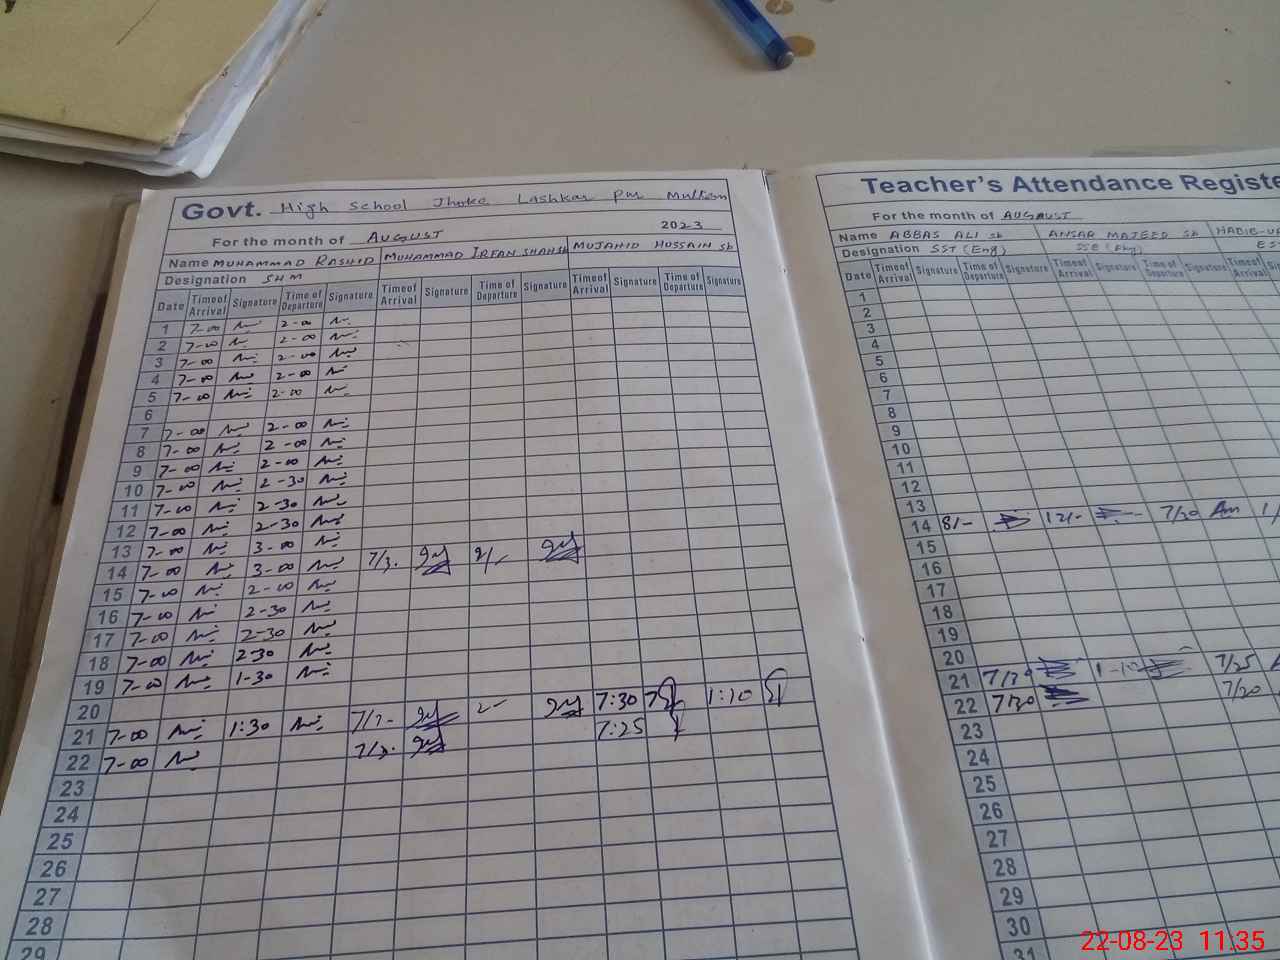 Govt. High School Jhoke Lashkar pur Multan
For the month of AUGUST 2023
Name MUHAMMAD RASHID MUHAMMAD IRFAN SHAH Sb MUJAHID HUSSAIN Sb
Designation SHM
Date Time of Arrival Signature Time of Departure Signature Time of Arrival Signature Time of Departure Signature Time of Arrival Signature Time of Departure Signature
1 7-00 2-00
2 7-00 2-00
3 7-00 2-00
4 7-00 2-00
5 7-00 2-00
6
7 7-00 2-00
8 7-00 2-00
9 7-00 2-00
10 7-00 2-30
11 7-00 2-30
12 7-00 2-30
13 7-00 3-00
14 7-00 3-00 7/3.
15 7-00 2-00
16 7-00 2-30
17 7-00 2-30
18 7-00 2-30
19 7-00 1-30
20
21 7-00 1:30 7:30 1:10
22 7-00 7:25
23
24
25
26
27
28
29
Teacher's Attendance Registe
For the month of AUGAUST
Name ABBAS ALI Sb ANSAR MAJEED Sb HABIB-U
Designation SST (Eng) SSE (Eng) ES
Date Time of Arrival Signature Time of Departure Signature Time of Arrival Signature Time of Departure Signature Time of Arrival Signatur
1
2
3
4
5
6
7
8
9
10
11
12
13
14 8/- 12/- 7/30
15
16
17
18
19
20
21 7/30 7/25
22 7/30 7/20
23
24
25
26
27
28
29
30
31
22-08-23 11:35